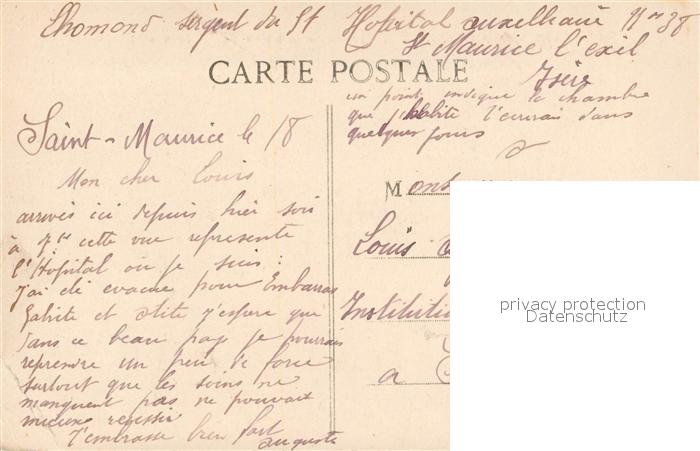 Lhomond sergent du 51 Hopital auxelhaire n° 38
St Maurice l'exil
Isère
CARTE POSTALE
un point indique la chambre
que j'habite l'écrirai dans
quelques jours
Saint-Maurice le 18
Mon cher Louis
arrivés ici depuis hier soir
à 7 hr cette vue represente
l'Hopital ou je suis :
J'ai été evacué pour Embarras
Gastrite et otite J'espere que
dans ce beau pays je pourrais
reprendre un peu de force
surtout que les soins ne
manquent pas ne pouvait
mieux reussir
J'embrasse bien fort
Auguste
Mons
Louis
Institutio
a
privacy protection
Datenschutz